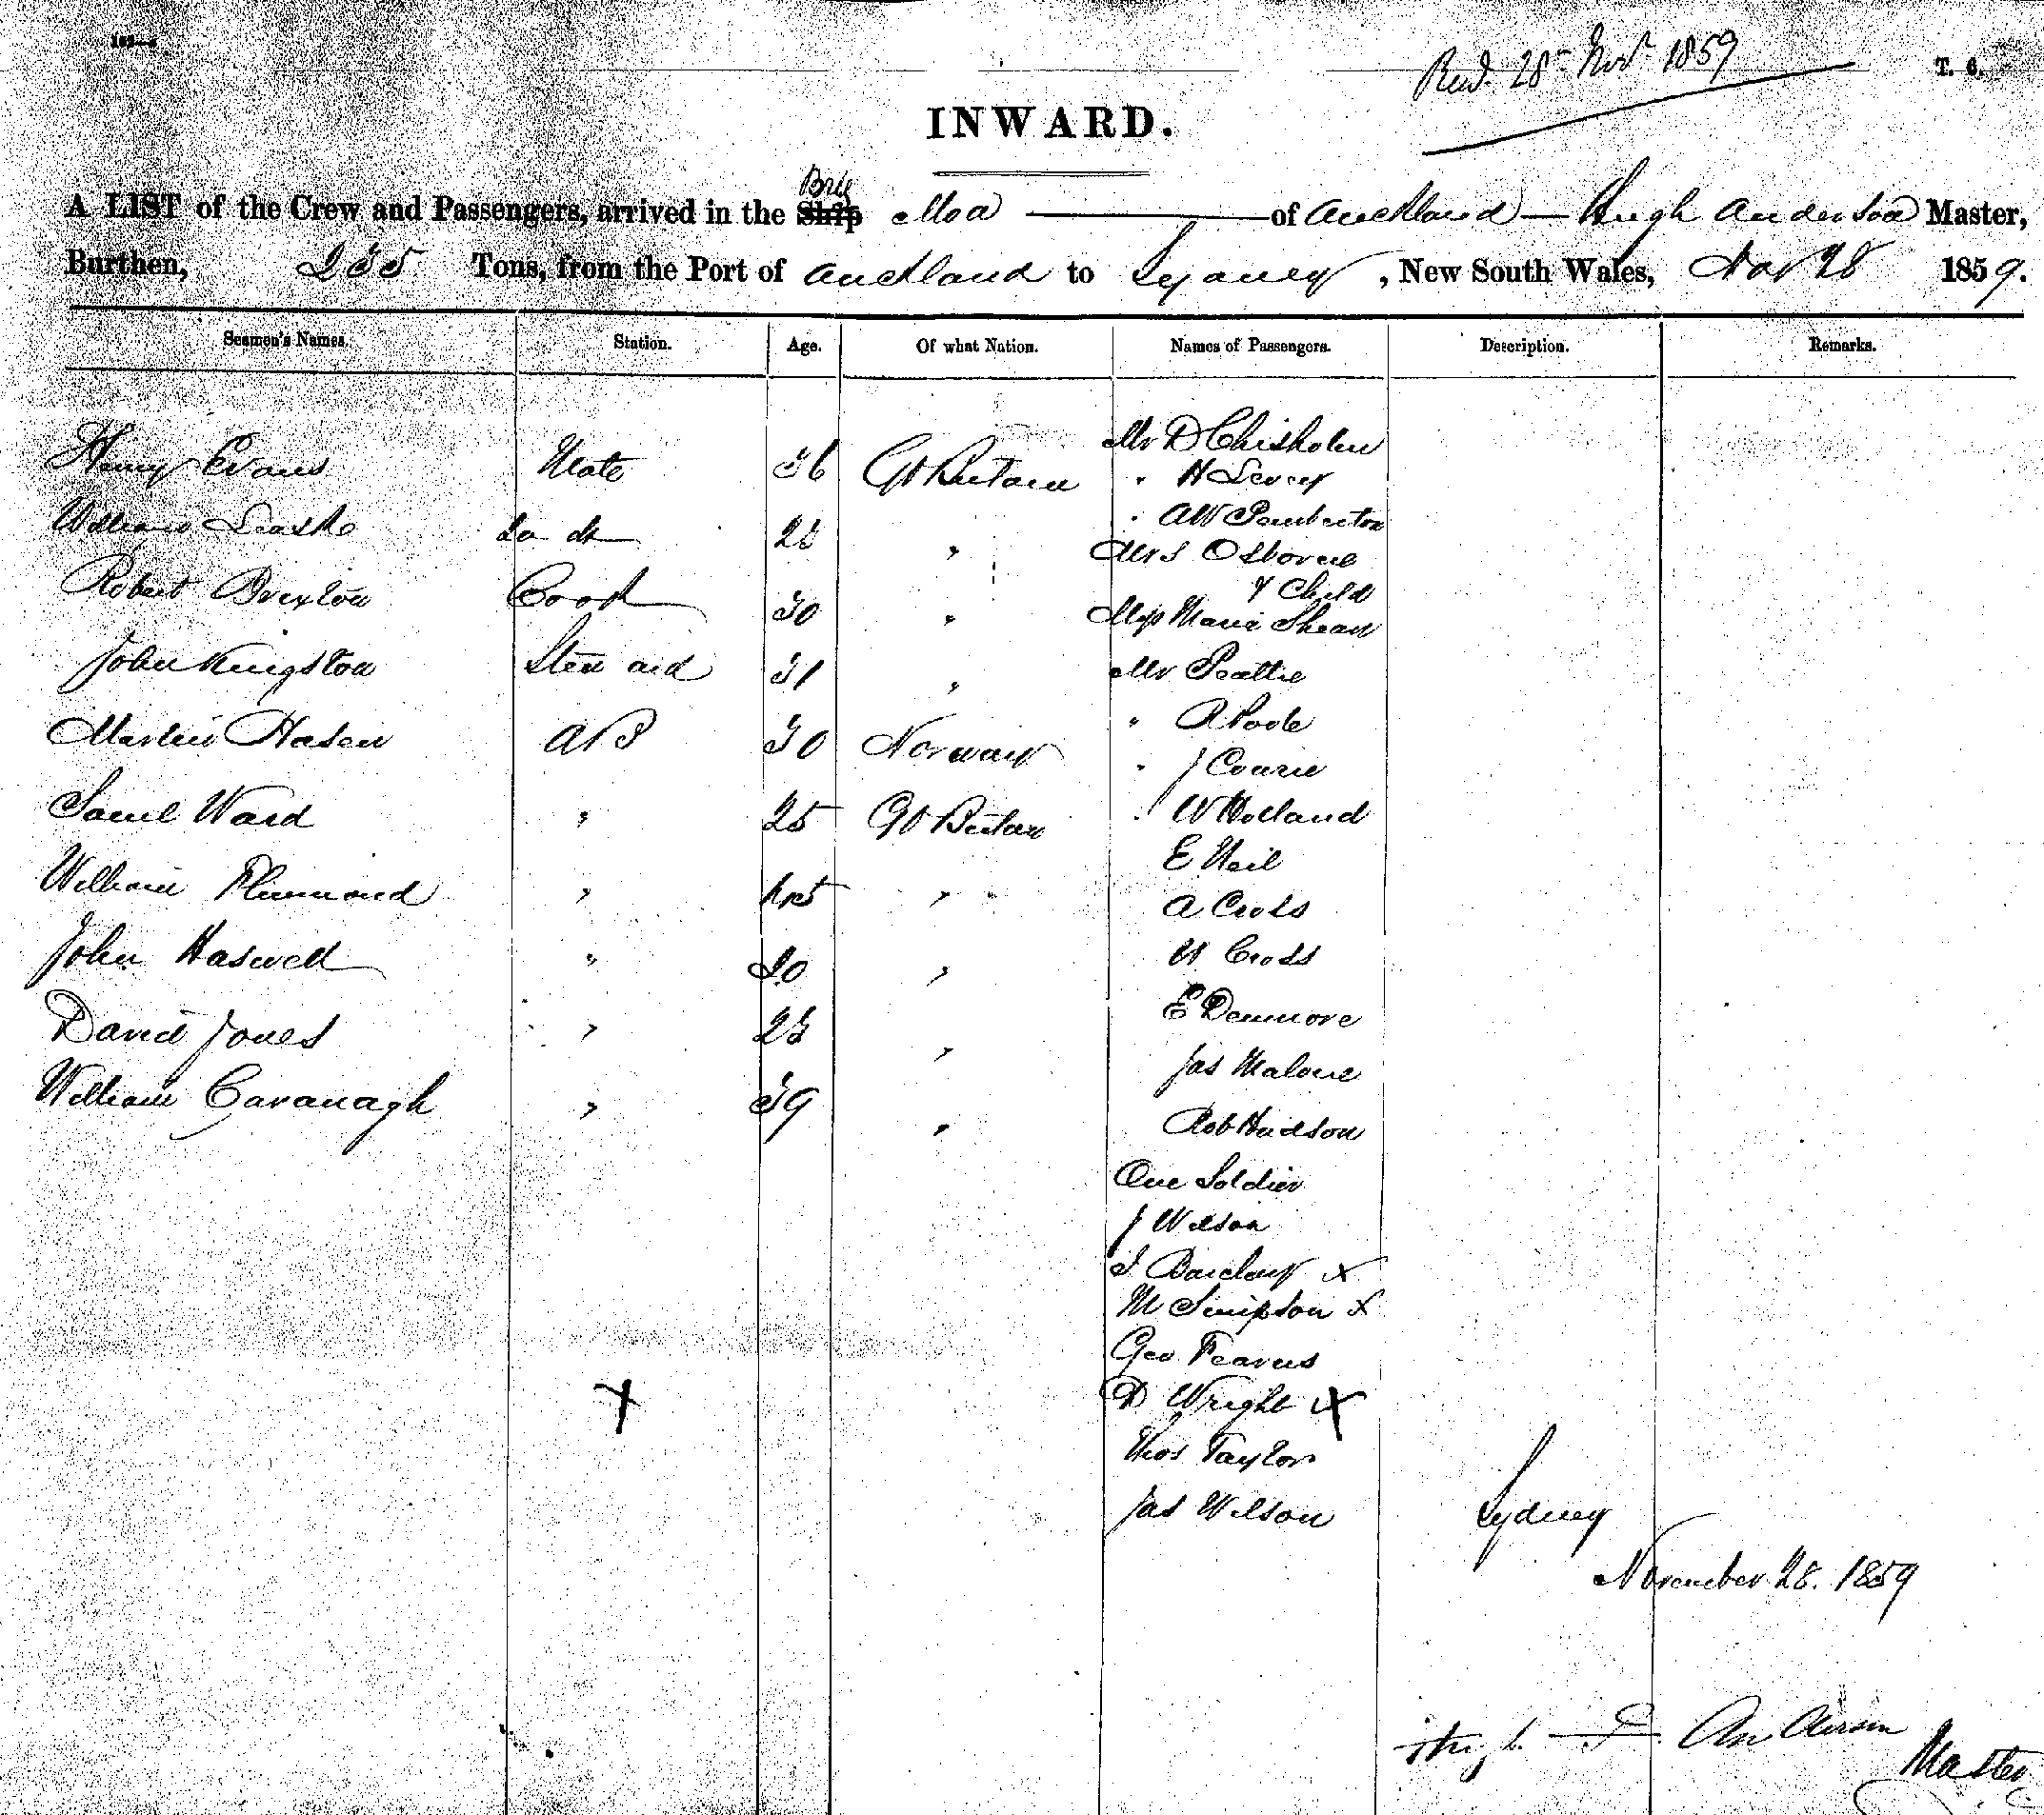 Recd. 28th Novr 1859
T. 6.
INWARD.
Brig
A LIST of the Crew and Passengers, arrived in the Ship Moa of Auckland Hugh Anderson Master,
Burthen, 235 Tons, from the Port of Auckland to Sydney, New South Wales, Nov 28 1859.
Seamen's Names. Station. Age. Of what Nation. Names of Passengers. Description. Remarks.
Mr D Chisholm
Henry Evans Mate 36 Gt Britain " H Levey
William Leaske 2nd do 23 " " AW Pemberton
Mrs Osborne
& Child
Robert Brixton Cook 30 " Miss Maria Shean
John Kingston Steward 31 " Mr Beattie
Martin Hasen AB 30 Norway " R Poole
" J Courie
Saml Ward " 25 Gt Britain " W Holland
E Neil
William Plummond " 45 " A Cross
John Haswell " 20 " W Cross
E Denmore
David Jones " 23 " Jas Malone
William Cavanagh " 39 " Rob Hudson
One Soldier
J Wilson
J Barclay x
M Simpson x
Geo Fearns
D Wright x
Thos Taylor
Jas Wilson Sydney
November 28. 1859
Hugh F Anderson
Master